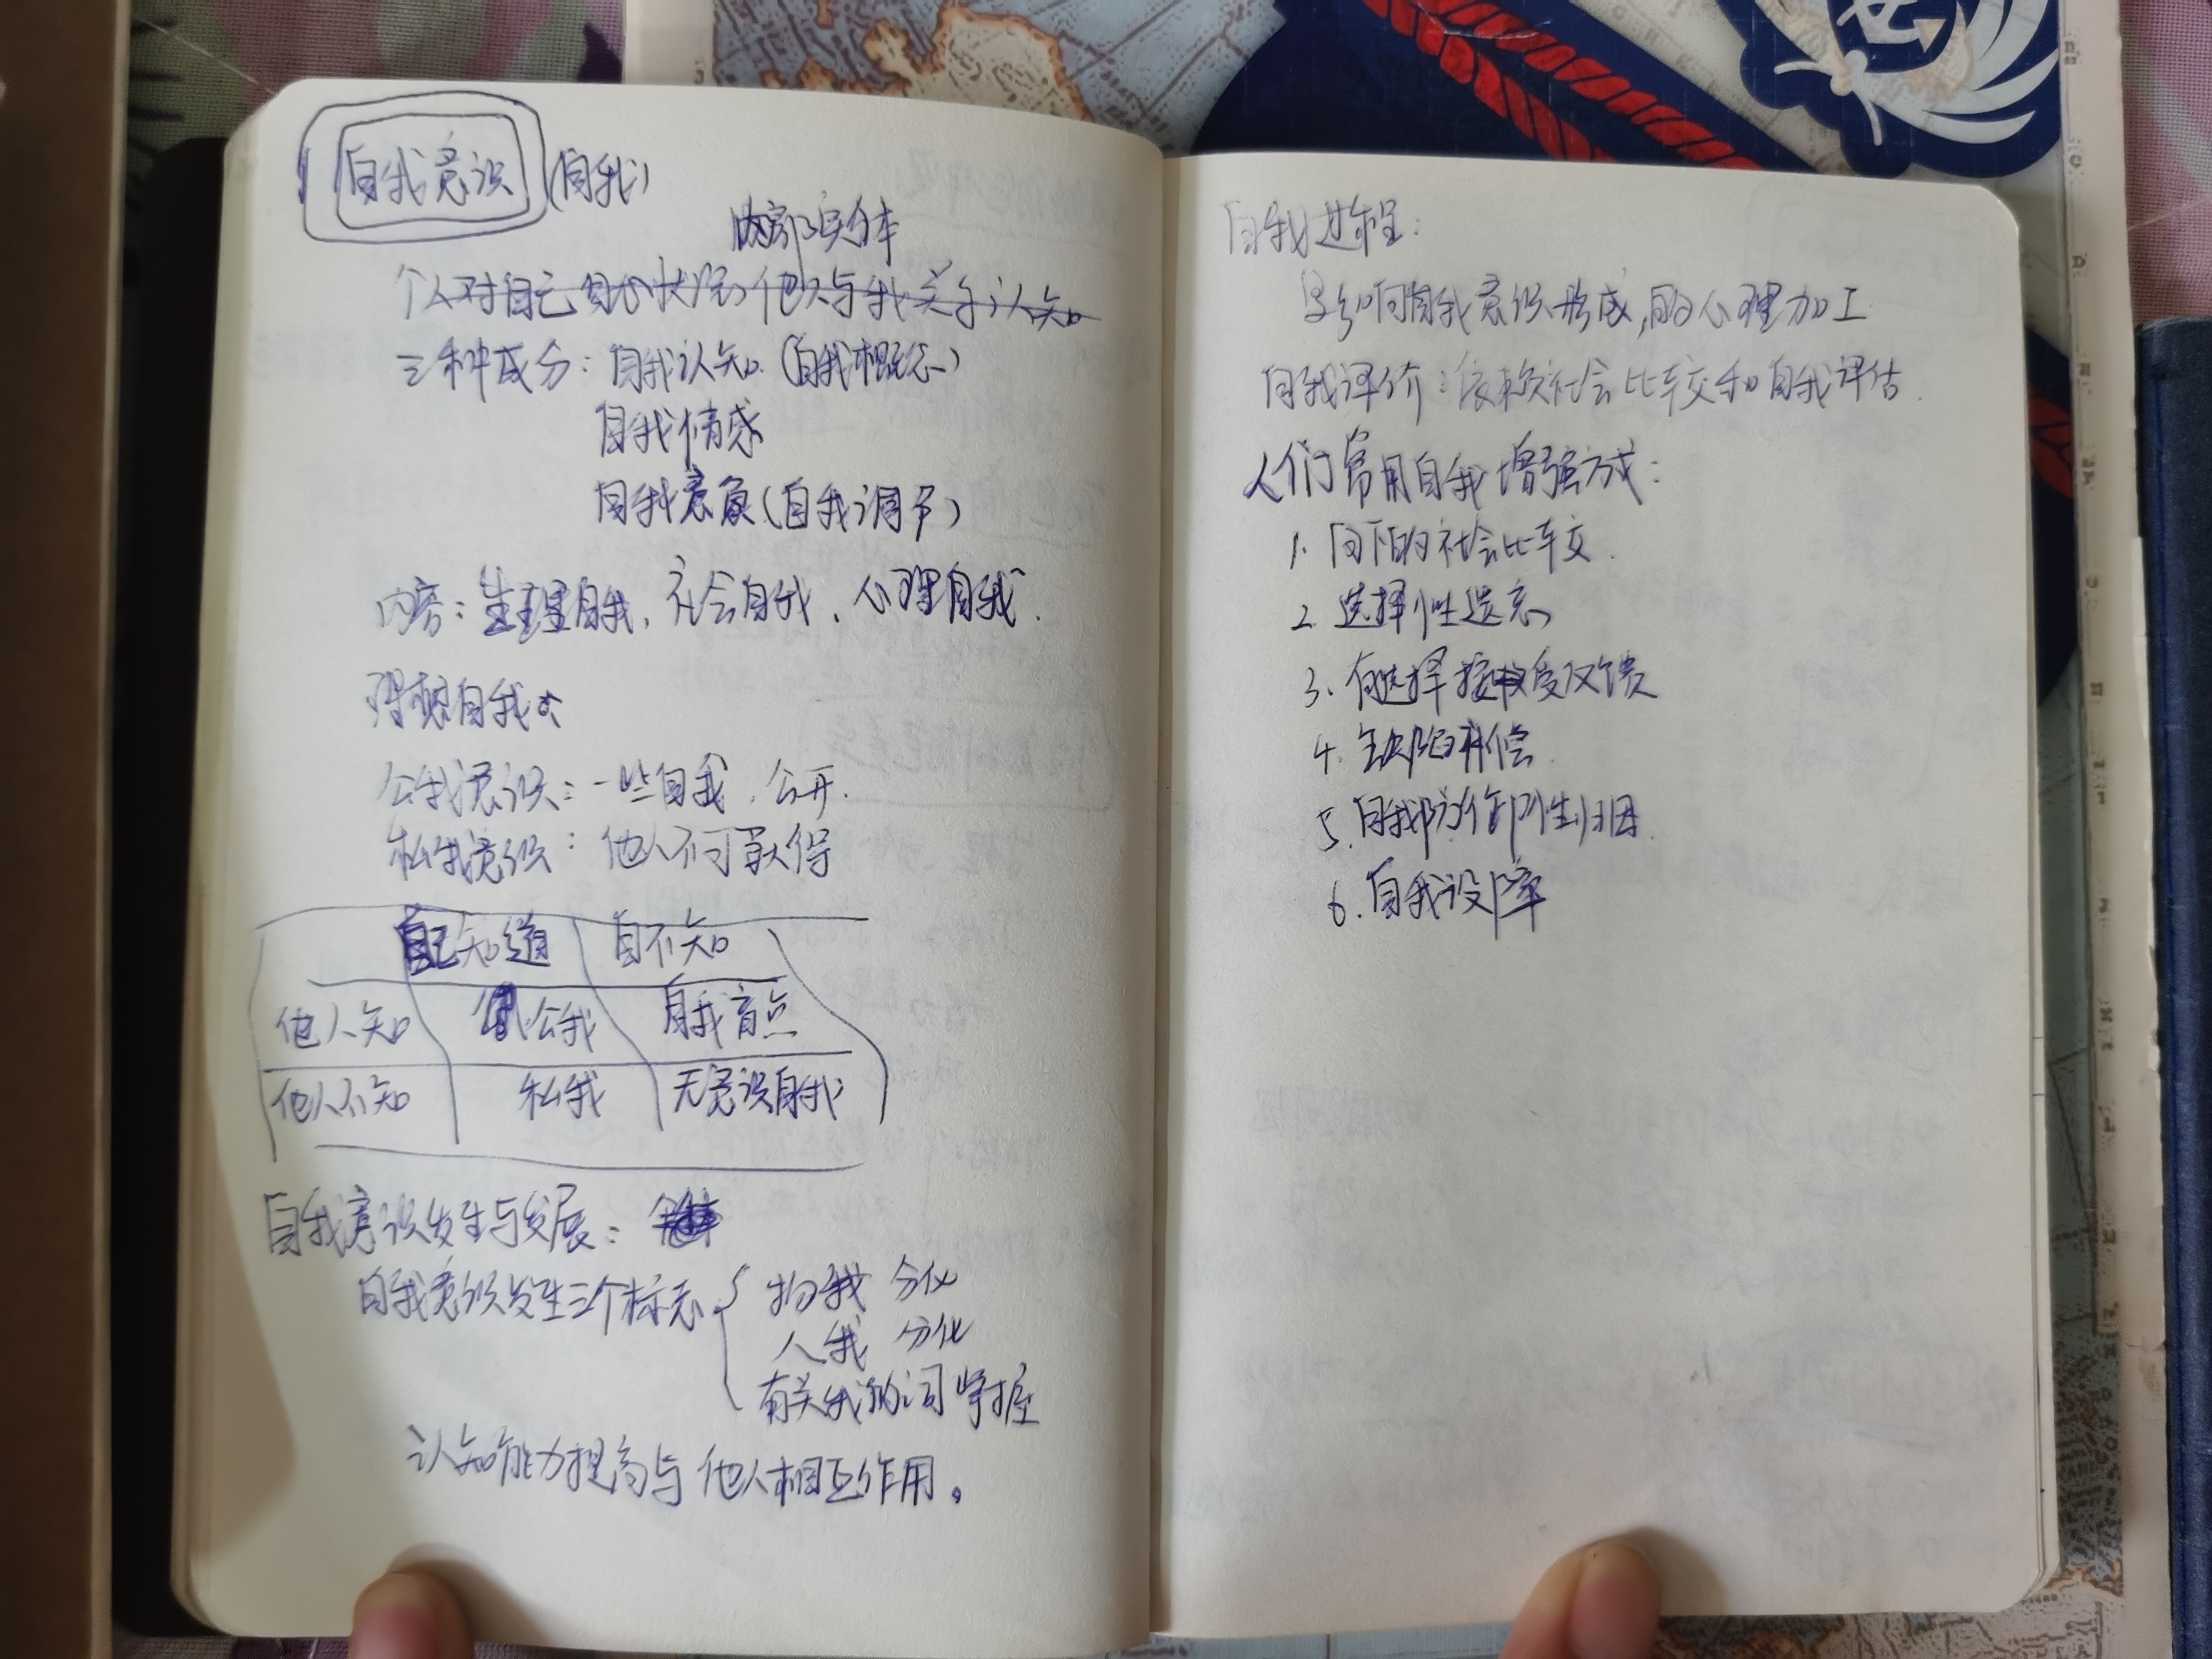 自我意识 (自我)
内部实体
个人对自己身心状况、他人与我关系认知
三种成分：自我认知 (自我概念)
自我情感
自我意负 (自我调节)
内容：生理自我，社会自我，心理自我.
理想自我
公我意识：一些自我，公开.
私我意识：他人不可获得
自己知道 自不知
他人知 公我 自我盲点
他人不知 私我 无意识自我
自我意识发生与发展：
自我意识发生三个标志
物我 分化
人我 分化
有关我的词掌握
认知能力提高与他人相互作用。
自我过程：
影响自我意识形成,的心理加工
自我评价：依赖社会比较和自我评估.
人们常用自我增强方式：
1. 向下的社会比较.
2. 选择性遗忘
3. 有选择接受反馈
4. 缺陷补偿.
5. 自我防御性归因.
6. 自我设障